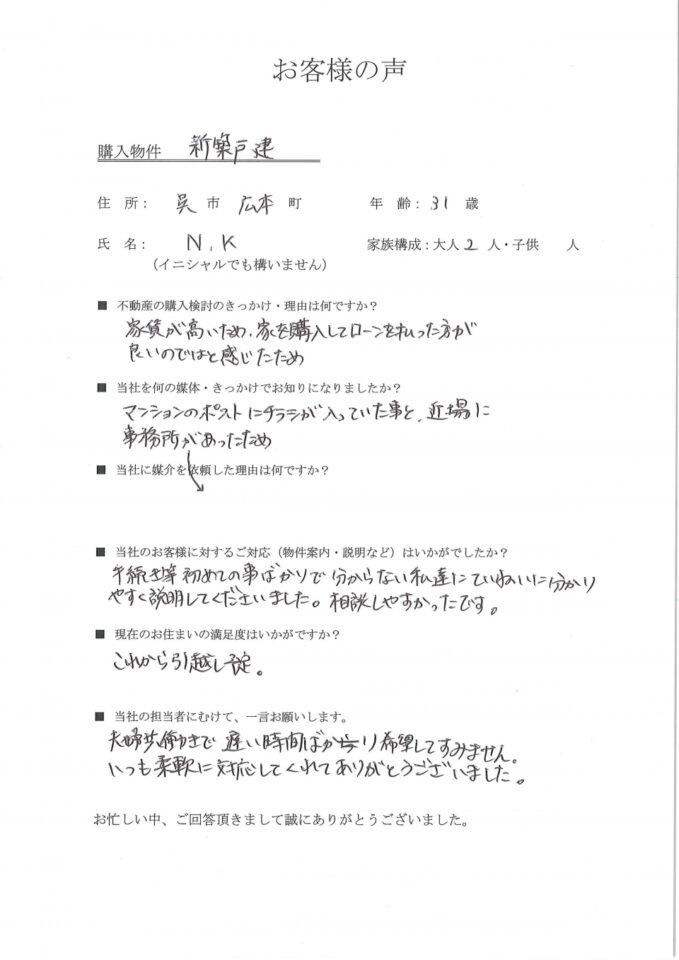 お客様の声
購入物件 新築戸建
住 所： 呉 市 広本 町 年 齢： 31 歳
氏 名： N.K 家族構成：大人 2 人・子供 人
（イニシャルでも構いません）
■ 不動産の購入検討のきっかけ・理由は何ですか？
家賃が高いため、家を購入してローンを払った方が
良いのではと感じたため
■ 当社を何の媒体・きっかけでお知りになりましたか？
マンションのポストにチラシが入っていた事と、近場に
事務所があったため
■ 当社に媒介を依頼した理由は何ですか？
■ 当社のお客様に対するご対応（物件案内・説明など）はいかがでしたか？
手続き等初めての事ばかりで分からない私達にていねいに分かり
やすく説明してくださいました。相談しやすかったです。
■ 現在のお住まいの満足度はいかがですか？
これから引越し予定。
■ 当社の担当者にむけて、一言お願いします。
夫婦共働きで遅い時間ばかり希望してすみません。
いつも柔軟に対応してくれてありがとうございました。
お忙しい中、ご回答頂きまして誠にありがとうございました。